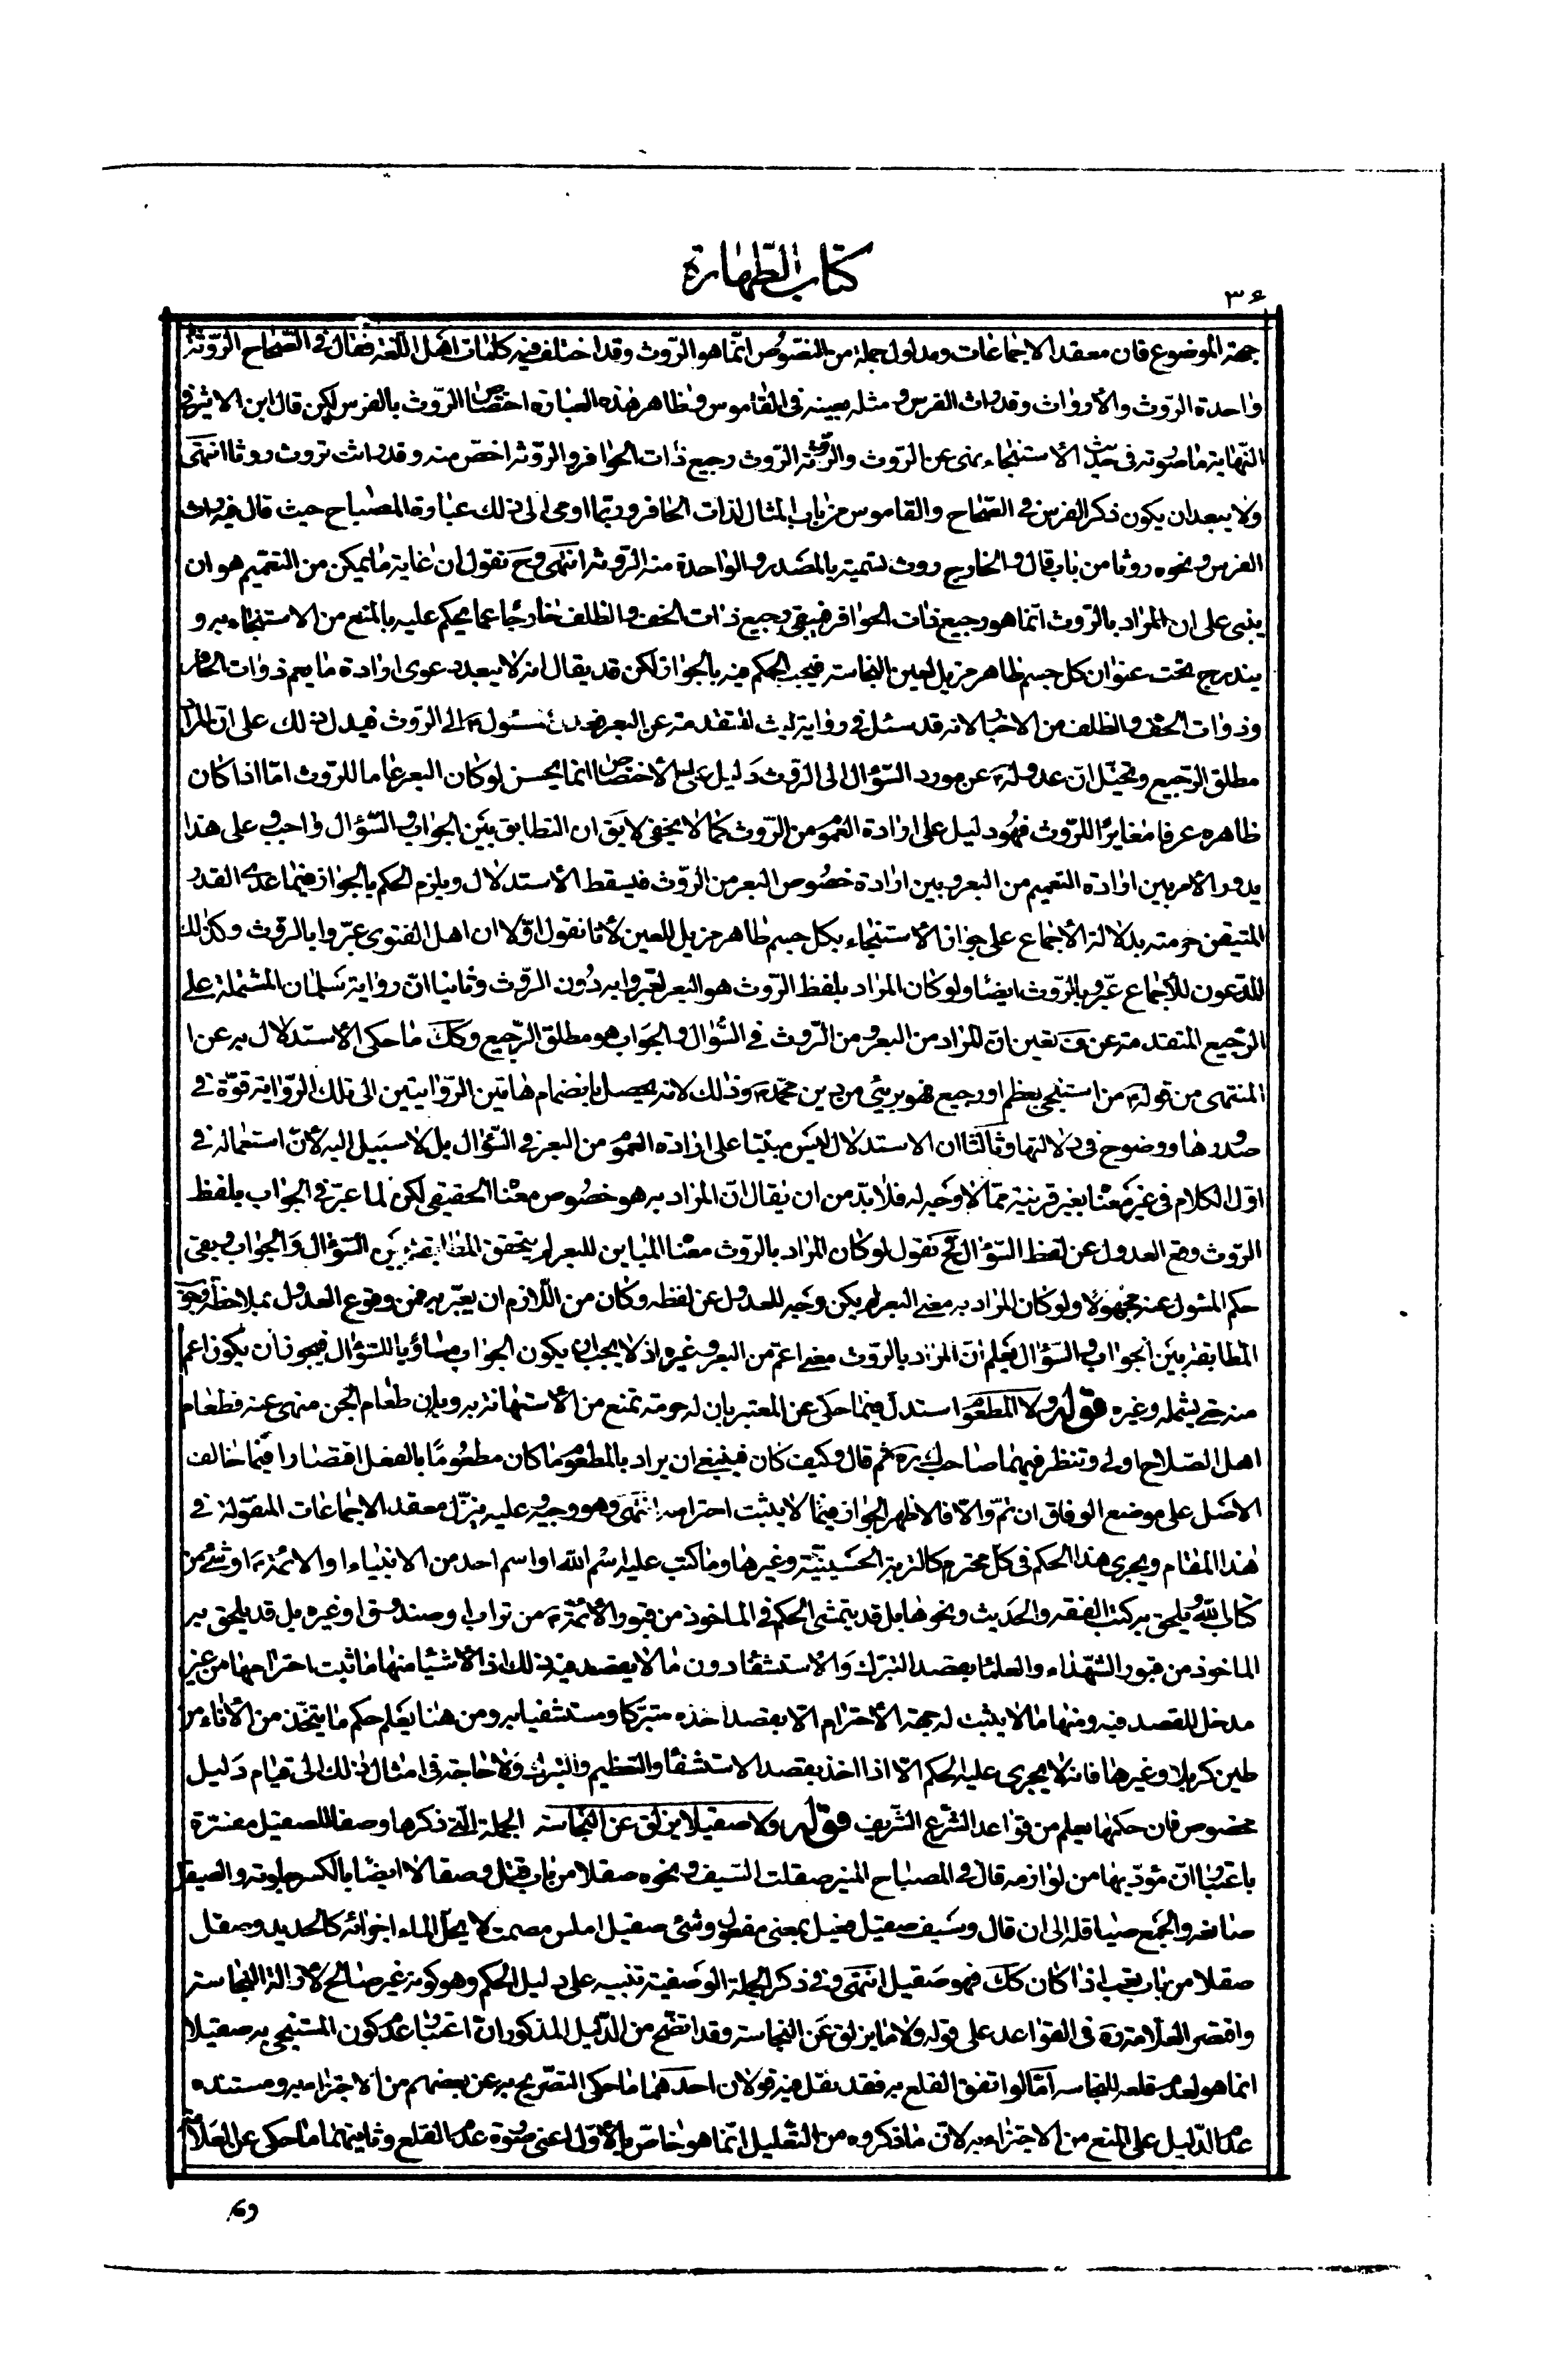 كتاب الطهارة
٣۶
جهة الموضوع فان معقد الاجماعات ومدلول جملة من النصوص انّما هو الرّوث وقد اختلف فيه كلمات اهل اللّغة فقال في الصّحاح الرّوثة
واحدة الرّوث والأرواث وقد راث الفرس ومثله بعينه في القاموس وظاهر هذه العبارة اختصاص الرّوث بالفرس لكن قال ابن الاثير في
النّهاية ما صورته في حديث الأستنجاء نهى عن الرّوث والرّمّة الرّوث رجيع ذات الحوافر والروثة اخصّ منه وقد راثت تروث روثا انتهى
ولا يبعد ان يكون ذكر الفرس في الصّحاح والقاموس من باب المثال لذات الحافر وربّما اومى الى ذلك عبارة المصباح حيث قال فيه راث
الفرس ونحوه روثا من باب قال والخارج روث تسمية بالمصدر والواحدة منه الرّوثة انتهى وح نقول ان غاية ما يمكن من التعميم هو ان
يبنى على ان المراد بالرّوث انّما هو رجيع ذات الحوافر فيبقى رجيع ذات الخف والظلف خارجًا عما يحكم عليه بالمنع من الاستنجاء به و
يندرج تحت عنوان كل جسم طاهر مزيل لعين النجاسة فيجب الحكم فيه بالجواز لكن قد يقال انه لا يبعد دعوى ارادة ما يعم ذوات الحافر
وذوات الخف والظلف من الاخبار لانه قد سئل في رواية ليث المتقدمة عن البعر فعدل المسئول ع الى الروث فيدل ذلك على ان المراد
مطلق الرّجيع وتخيّل انّ عدوله ع عن مورد السّؤال الى الروث دليل على الأختصاص انما يحسن لو كان البعر عاما للرّوث امّا اذا كان
ظاهره عرفا مغايرًا للرّوث فهو دليل على ارادة العموم من الرّوث كما لا يخفى لا يق ان التطابق بين الجواب والسّؤال واجب وعلى هذا
يدور الأمر بين ارادة التعميم من البعر وبين ارادة خصوص البعر من الروث فيسقط الأستدلال ويلزم الحكم بالجواز فيما عدى القدر
المتيقن حرمته بدلالة الأجماع على جواز الأستنجاء بكل جسم طاهر مزيل للعين لأنا نقول اوّلا ان اهل الفتوى عبّروا بالروث وكذلك
المدّعون للأجماع عبّروا بالرّوث ايضًا ولو كان المراد بلفظ الرّوث هو البعر لعبّروا به دون الروث وثانيا انّ رواية سلمان المشتملة على
الرّجيع المتقدمة عن ف تعين ان المراد من البعر ومن الرّوث في السّؤال والجواب هو مطلق الرّجيع وكك ما حكى الأستدلال به عن
المنتهى من قوله ع من استنجى بعظم او رجيع فهو برئ من دين محمّد ص وذلك لانه يحصل بانضمام هاتين الرّوايتين الى تلك الرّواية قوّة في
صدورها ووضوح في دلالتها وثالثا ان الاستدلال ليس مبنيّا على ارادة العموم من البعر في السّؤال بل لا سبيل اليه لأنّ استعماله في
اوّل الكلام في غير معناه بغير قرينة ممّا لا وجه له فلا بدّ من ان يقال انّ المراد به هو خصوص معناه الحقيقي لكن لما عبّر في الجواب بلفظ
الرّوث وقع العدول عن لفظ السّؤال فح نقول لو كان المراد بالرّوث معناه المباين للبعر لم يتحقق المطابقة بين السّؤال والجواب ويبقى
حكم المسئول عنه مجهولا ولو كان المراد به معنى البعر لم يكن وجه للعدول عن لفظه وكان من اللّازم ان يعبّر به فمن وقوع العدول بملاحظة وجوب
المطابقة بين الجواب والسّؤال يعلم ان المراد بالروث معنى اعمّ من البعر وغيره اذ لا يجب ان يكون الجواب مساويا للسّؤال فيجوز ان يكون اعم
منه حتى يشمله وغيره قوله ولا المطعوم استدل فيما حكى عن المعتبر بان له حرمة تمنع من الأستهانة به وبان طعام الجن منهى عنه فطعام
اهل الصّلاح اولى وتنظر فيهما صاحب ك ره ثم قال وكيف كان فينبغي ان يراد بالمطعوم ما كان مطعومًا بالفعل اقتصارا فيما خالف
الاصل على موضع الوفاق ان تمّ والّا فالاظهر الجواز فيما لا يثبت احترامه انتهى وهو وجيه وعليه ينزّل معقد الاجماعات المنقولة في
هذا المقام ويجري هذا الحكم في كل محترم كالتربة الحسينيّة وغيرها وما كتب عليه اسم الله او اسم احد من الانبياء او الائمة ع او شئ من
كتاب الله ويلحق به كتب الفقه والحديث ونحوها بل قد يتمشى الحكم في الماخوذ من قبور الأئمّة ع من تراب او صندوق او غيره بل قد يلحق به
الماخوذ من قبور الشّهداء والعلماء بقصد التبرّك والأستشفاء دون ما لا يقصد فيه ذلك اذ الأشياء منها ما ثبت احترامها من غير
مدخل للقصد فيه ومنها ما لا يثبت له جهة الأحترام الّا بقصد اخذه متبرّكا ومستشفيا به ومن هنا يعلم حكم ما يتّخذ من الأناء من
طين كربلا وغيرها فانه لا يجري عليه الحكم الّا اذا اخذ بقصد الاستشفاء والتعظيم والتبرّك ولا حاجة في امثال ذلك الى قيام دليل
مخصوص فان حكمها يعلم من قواعد الشّرع الشّريف قوله ولا صقيلا يزلق عن النجاسة الجملة الّتي ذكرها وصفا للصقيل مفسّرة
باعتبار انّ مؤدّيها من لوازمه قال في المصباح المنير صقلت السّيف ونحوه صقلا من باب قتل وصقالا ايضًا بالكسر جلوته والصيقل
صانعه والجمع صياقلة الى ان قال وسيف صقيل فعيل بمعنى مفعول وشئ صقيل املس مصمت لا يخلّ الماء اجزائه كالحديد وصقل
صقلا من باب تعب اذا كان كك فهو صقيل انتهى وفي ذكر الجملة الوصفية تنبيه على دليل الحكم وهو كونه غير صالح لأزالة النجاسة
واقتصر العلّامة ره في القواعد على قوله ولا ما يزلق عن النجاسة وقد اتّضح من الدّليل المذكور ان اعتبار عدم كون المستنجى به صقيلا
انما هو لعدم قلعه للنجاسة امّا لو اتفق القلع به فقد نقل فيه قولان احدهما ما حكى التصّريح به عن بعضهم من الاجتزاء به ومستنده
عدم الدّليل على المنع من الاجتزاء به لانّ ما ذكروه من التّعليل انّما هو خاصّ بالأوّل اعني صورة عدم القلع وثانيهما ما حكى عن العلّامة
في